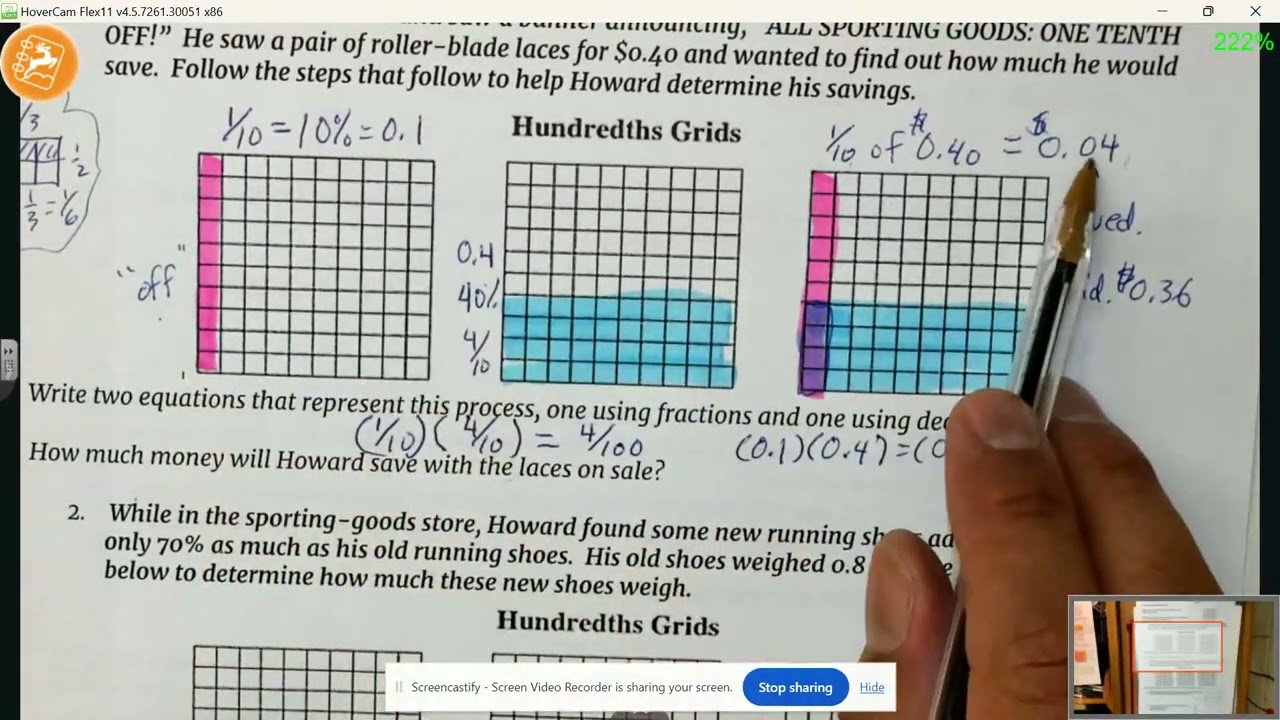 HoverCam Flex11 v4.5.7261.30051 x86
222%
a banner announcing, "ALL SPORTING GOODS: ONE TENTH
OFF!" He saw a pair of roller-blade laces for $0.40 and wanted to find out how much he would
save. Follow the steps that follow to help Howard determine his savings.
1/10 = 10% = 0.1
Hundredths Grids
1/10 of $0.40 = $0.04
1/2
1/3 = 1/6
"off"
0.4
40%
4/10
$0.36
Write two equations that represent this process, one using fractions and one using
(1/10)(4/10) = 4/100
(0.1)(0.4)=(0
How much money will Howard save with the laces on sale?
2. While in the sporting-goods store, Howard found some new running
only 70% as much as his old running shoes. His old shoes weighed 0.8
below to determine how much these new shoes weigh.
Hundredths Grids
Screencastify - Screen Video Recorder is sharing your screen.
Stop sharing
Hide